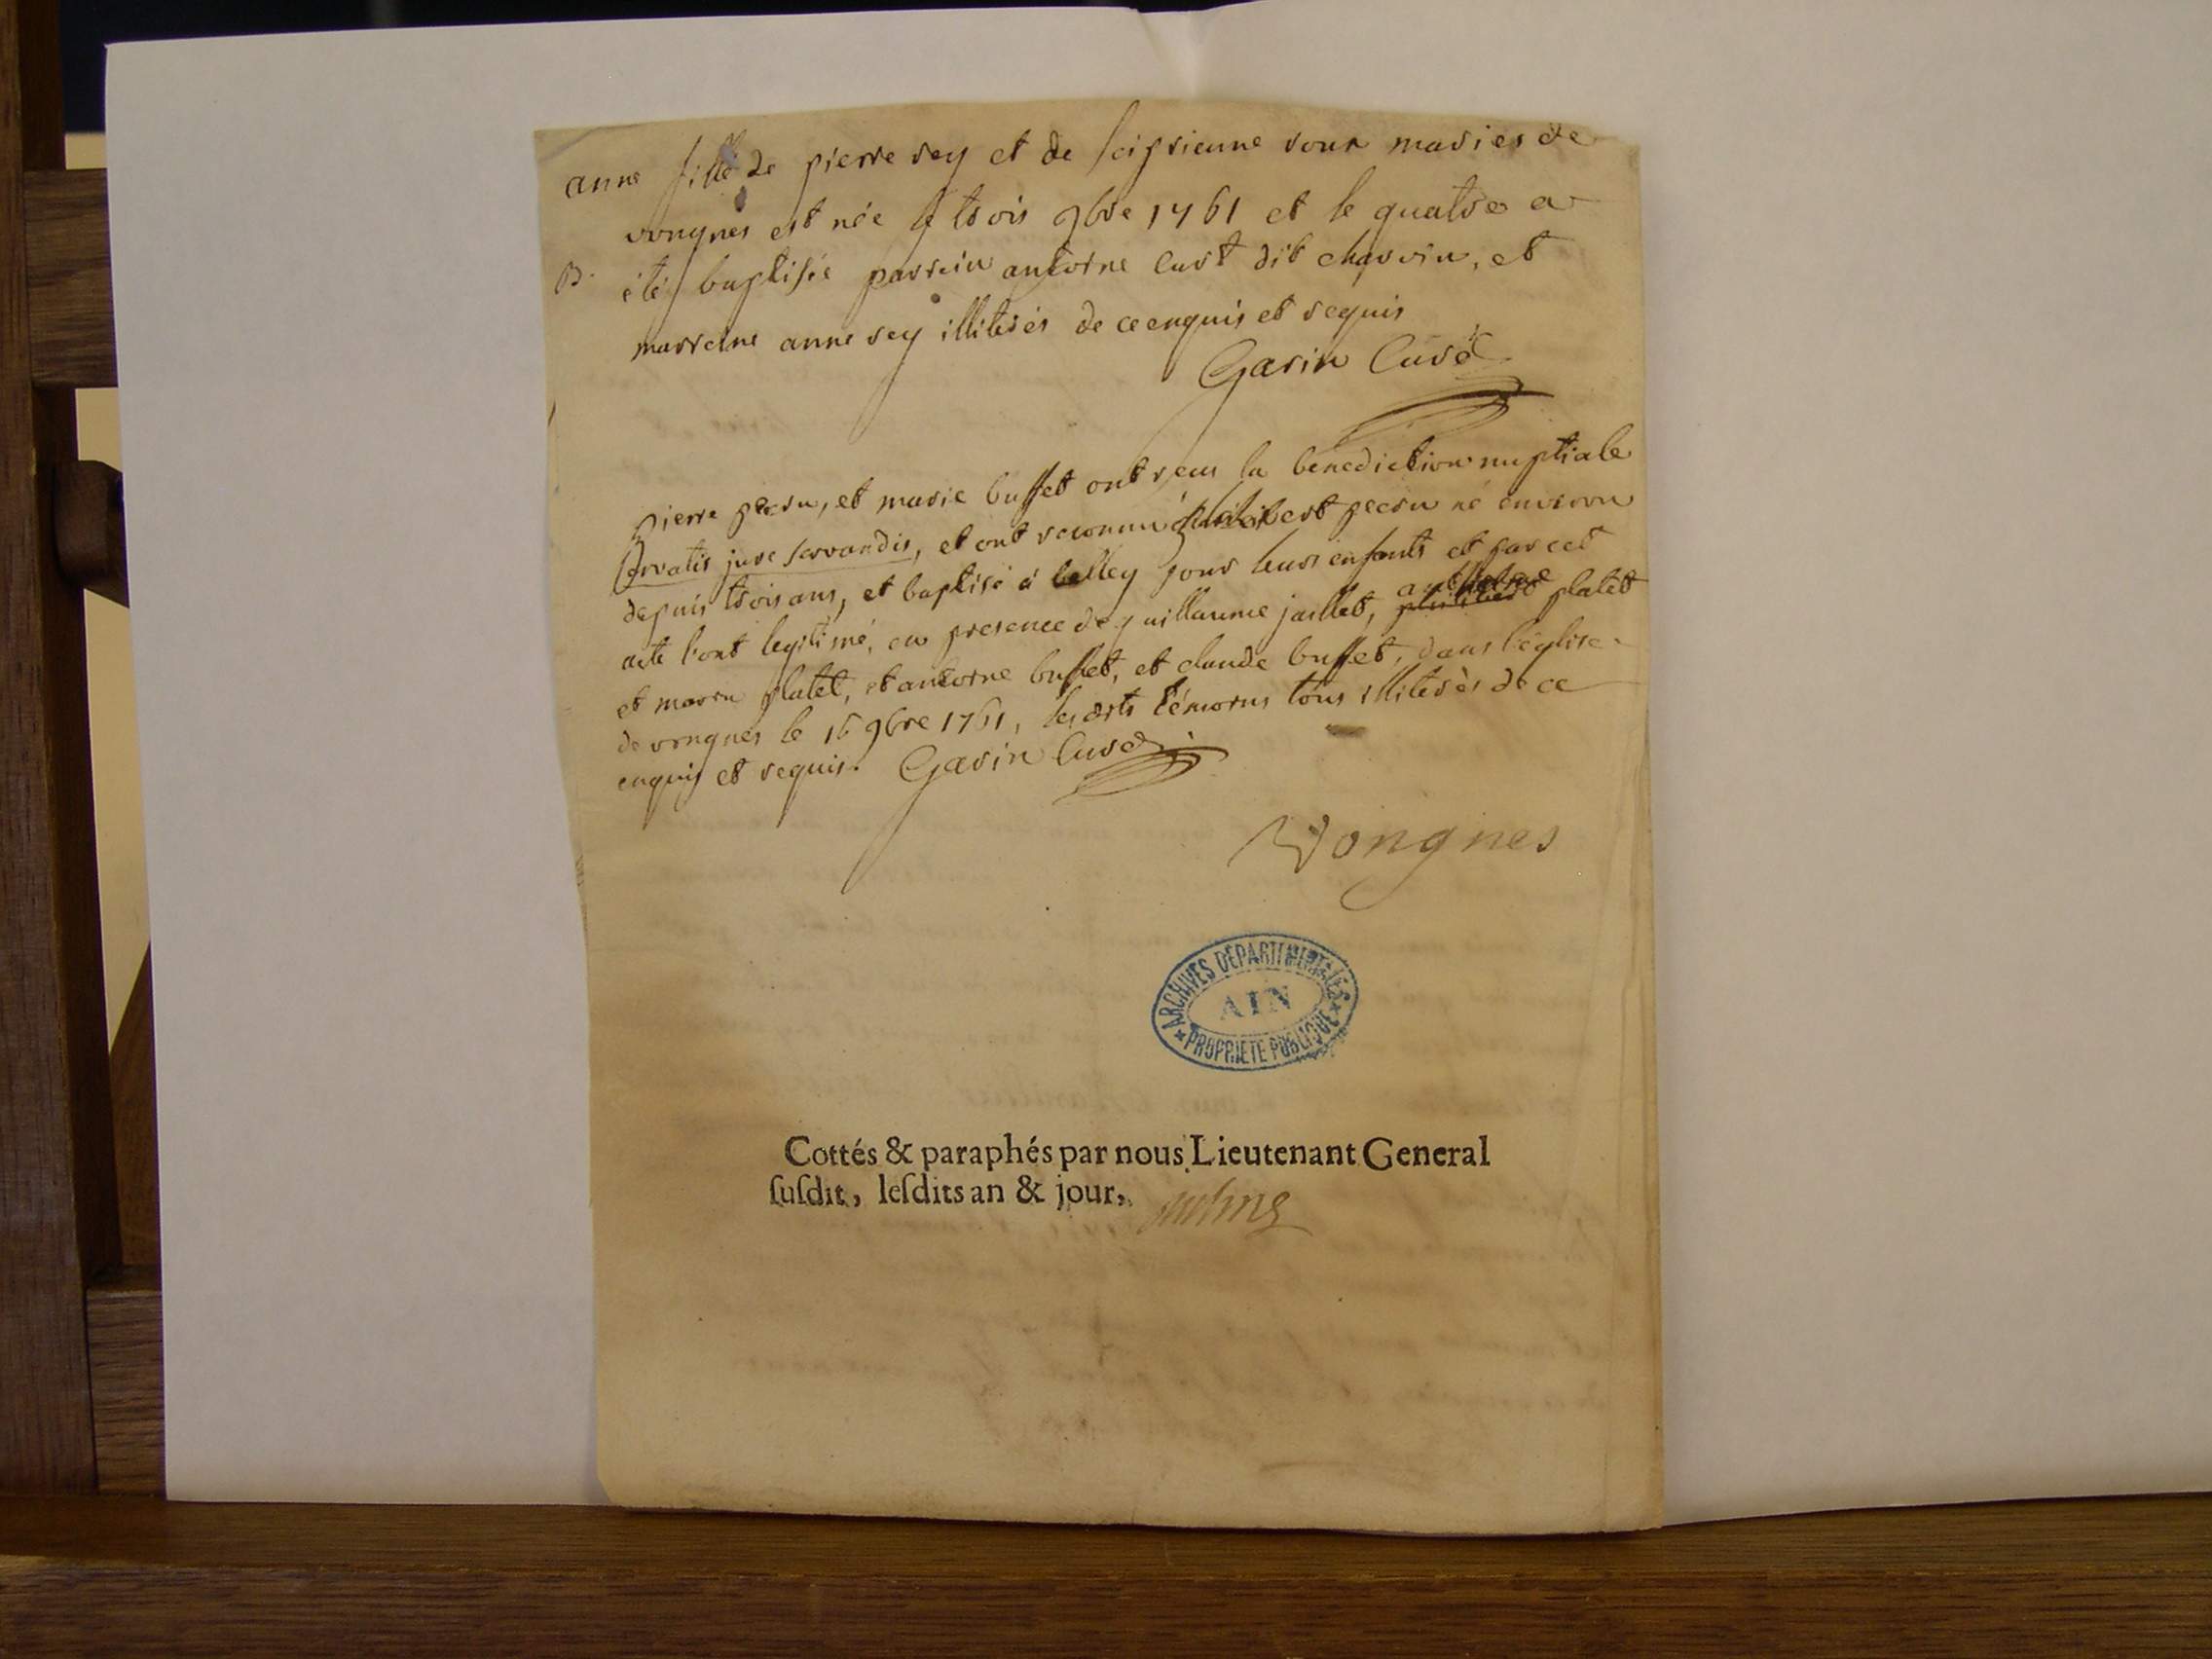 anne fille de pierre rey et de sciprienne roux mariés de
vongnes est née le trois 9bre 1761 et le quatre a
B. été baptisée parrein antoine curt dit charvin, et
marreine anne rey illiterés de ce enquis et requis
Garin Curé
pierre pecru, et marie buffet ont reçu la benediction nuptiale
servatis jure servandis, et ont reconnu philibert pecru né environ
depuis trois ans, et baptisé à belley pour leurs enfants et par cet
acte l'ont legitimé, en presence de guillaume jaillet, anthelme platet
et platet, et antoine buffet, et claude buffet, dans l'église
de vongnes le 16 9bre 1761, les dits témoins tous illiterés de ce
enquis et requis. Garin Curé
Vongnes
ARCHIVES DEPARTEMENTALES
AIN
PROPRIETE PUBLIQUE
Cottés & paraphés par nous Lieutenant General
ſuſdit, leſdits an & jour,